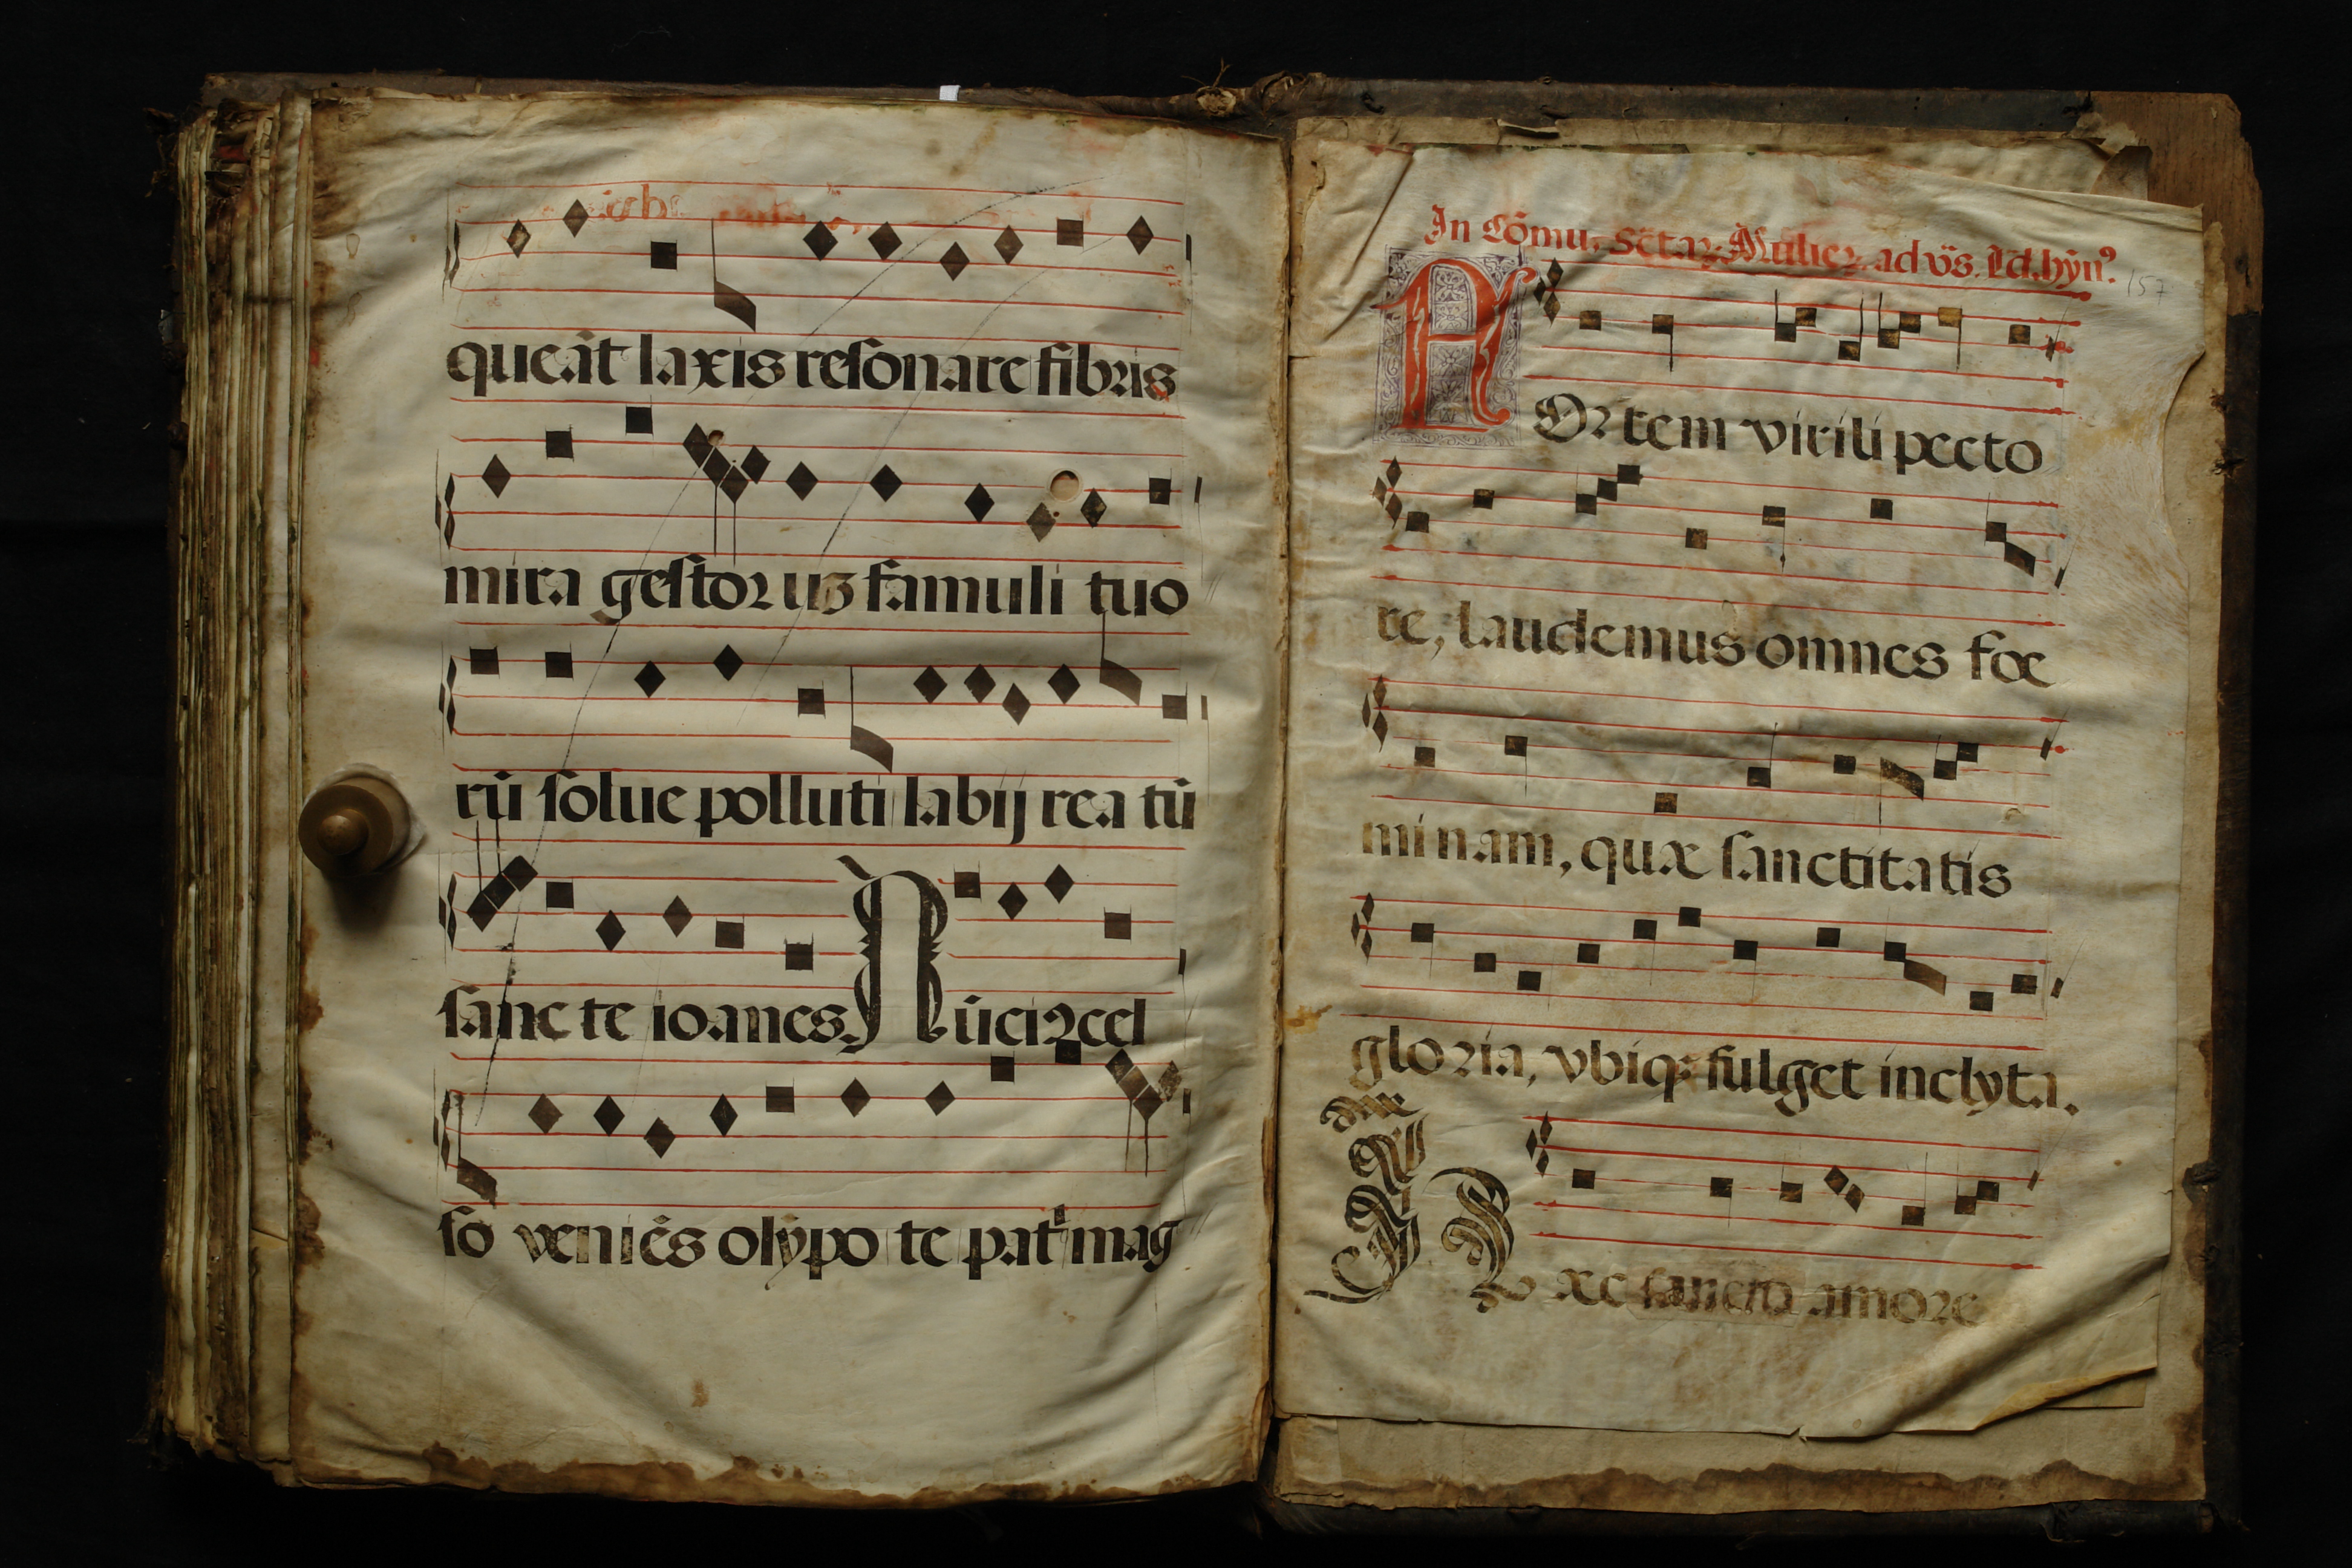 queāt laxis resonare fibris
mira gestoruz famuli tuo
rū solue polluti labij reatū
sancte ioanes. Nūcius cel
so veniēs olȳpo te pat mag
In Cōmu. Sctar. Mulier. ad vs̄. Id. hyn⁹
157
FORtem virili pecto
re, laudemus omnes foe
minam, quæ sanctitatis
gloria, vbiq; fulget inclyta.
sancto amore